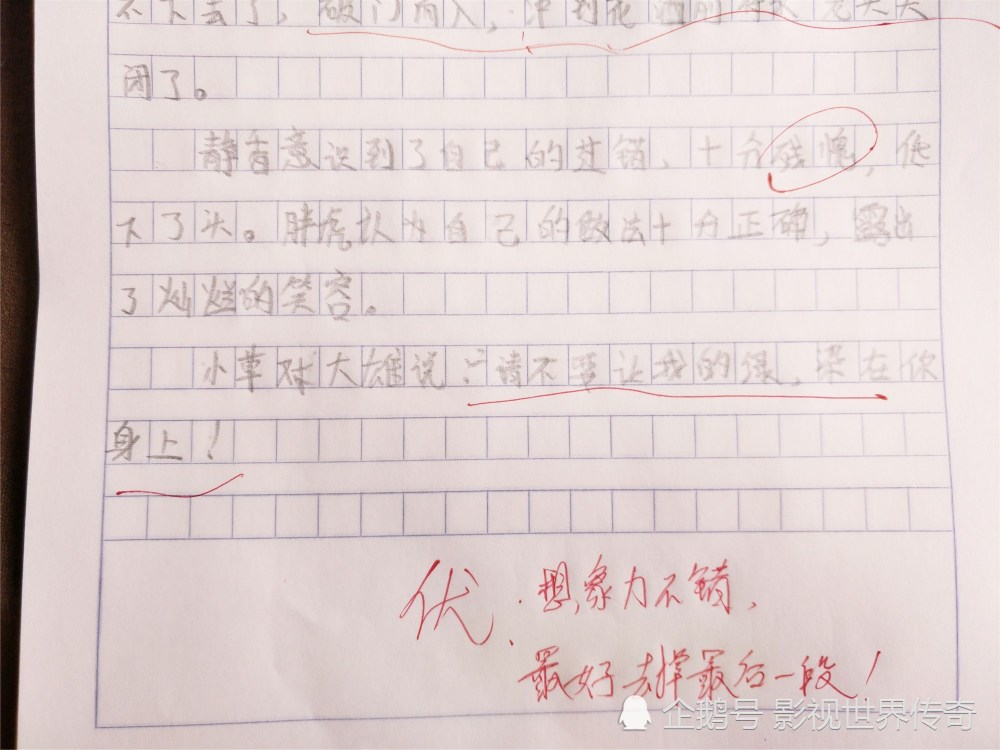 不下去了，破门而入，冲到花洒前将水龙头关
闭了。
静香意识到了自己的过错，十分残愧，低
下了头。胖虎认为自己的做法十分正确，露出
了灿烂的笑容。
小草对大雄说：“请不要让我的绿，染在你
身上！
优．想象力不错，
最好去掉最后一段！
企鹅号 影视世界传奇